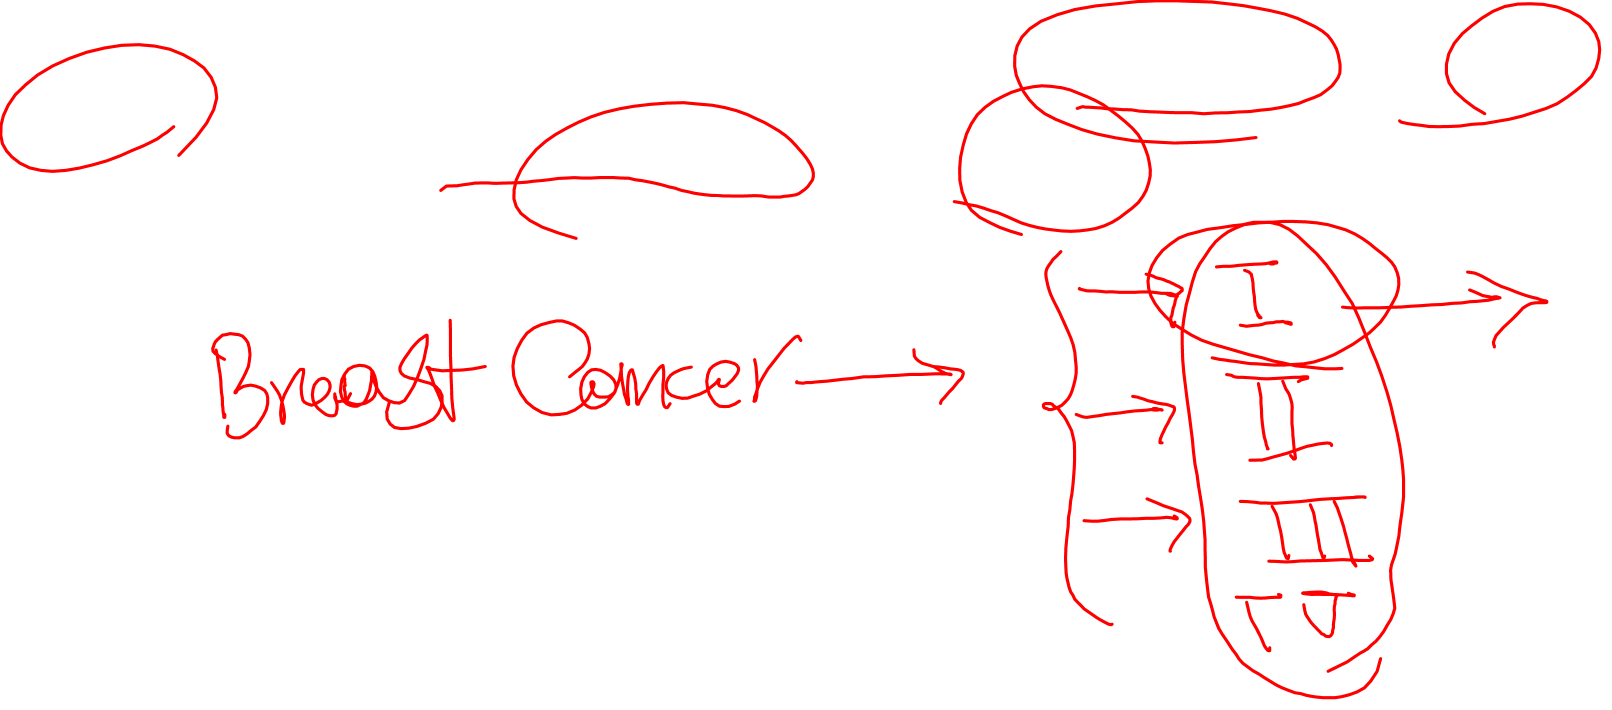 Breast Cancer
I
II
III
IV